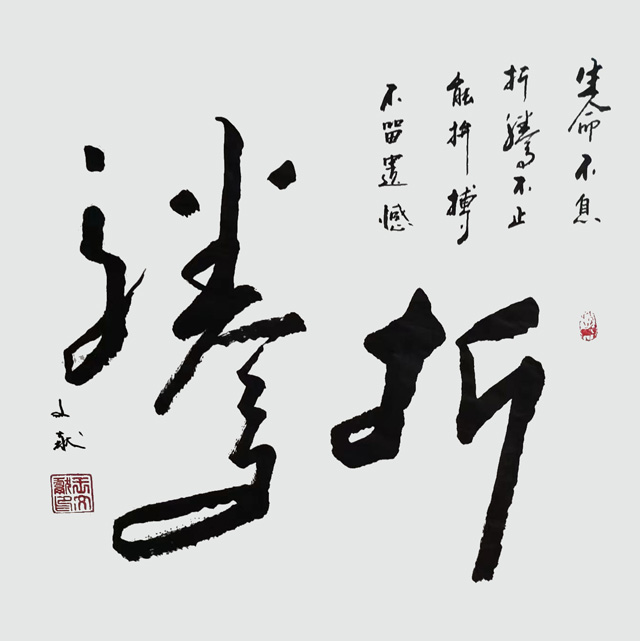 生命不息
折騰不止
能拚搏
不留遺憾
折騰
文献